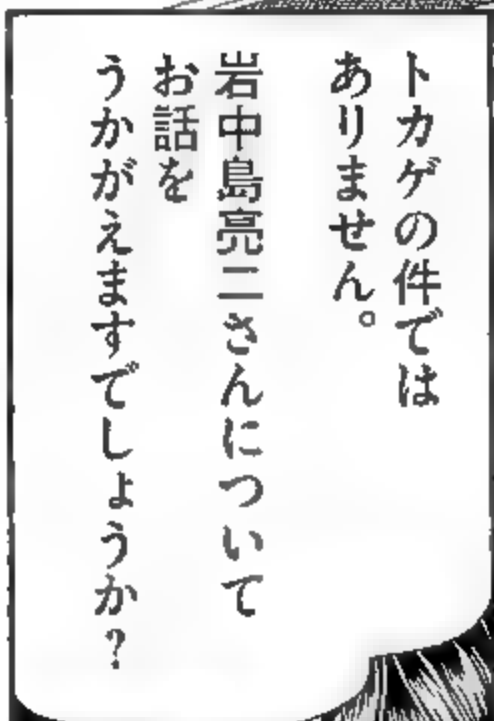 トカゲの件では
ありません。
岩中島亮二さんについて
お話を
うかがえますでしょうか?